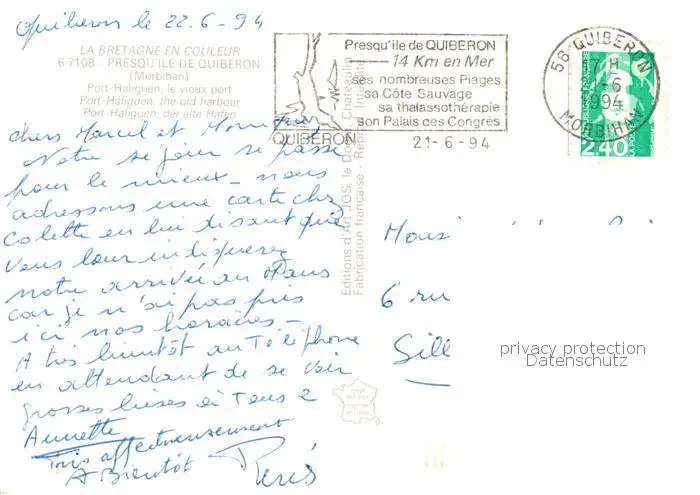 Quiberon le 22-6-94
LA BRETAGNE EN COULEUR
6 7108 - PRESQU'ILE DE QUIBERON
(Morbihan)
Port-Haliguen, le vieux port
Port-Haliguen, the old harbour
Port-Haliguen, der alte Hafen
Presqu'ile de QUIBERON
14 Km en Mer
ses nombreuses Plages
sa Côte Sauvage
sa thalassothérapie
son Palais des Congrès
QUIBERON
21-6-94
56 QUIBERON
17 H
1994
MORBIHAN
2,40
chers Marcel et
Notre séjour se passe
pour le mieux - nous
adressons une carte chez
Colette en lui disant que
vous leur indiquerez
notre arrivée au Mans
car je n'ai pas pris
ici nos horaires -
A très bientôt au Téléphone
en attendant de se voir
grosses bises à Tous 2
Annette
Très affectueusement
A Bientôt René
Editions d'Art JOS, le Doaré, Châteaulin
Fabrication française - Reproduction interdite
Mousi
6 ru
Sill
privacy protection
Datenschutz